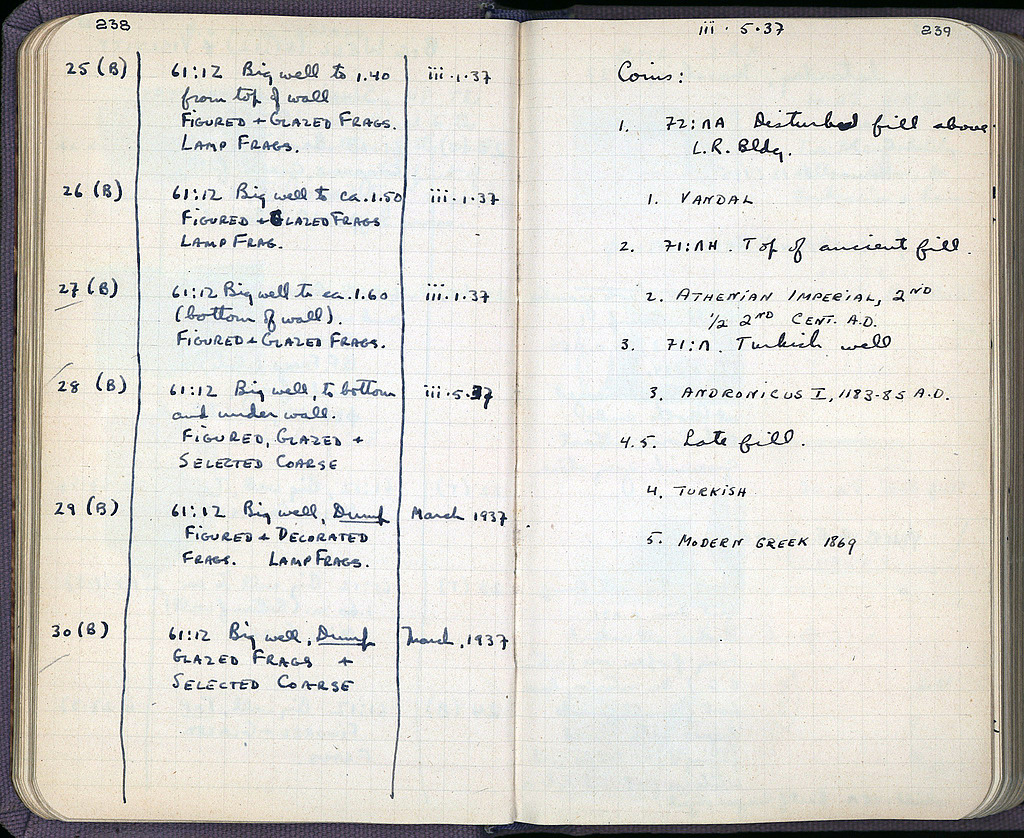 238
25 (B) 61:12 Big well to 1.40 iii·1·37
from top of wall
FIGURED + GLAZED FRAGS.
LAMP FRAGS.
26 (B) 61:12 Big well to ca. 1.50 iii·1·37
FIGURED + GLAZED FRAGS
LAMP FRAG.
27 (B) 61:12 Big well to ca. 1.60 iii·1·37
(bottom of wall).
FIGURED + GLAZED FRAGS.
28 (B) 61:12 Big well, to bottom iii·5·37
and under wall.
FIGURED, GLAZED +
SELECTED COARSE
29 (B) 61:12 Big well, Dump March 1937
FIGURED + DECORATED
FRAGS. LAMP FRAGS.
30 (B) 61:12 Big well, Dump March, 1937
GLAZED FRAGS +
SELECTED COARSE
iii·5·37 239
Coins:
1. 72:ΛA Disturbed fill above
L.R. Bldg.
1. VANDAL
2. 71:ΛH. Top of ancient fill.
2. ATHENIAN IMPERIAL, 2ND
1/2 2ND CENT. A.D.
3. 71:Λ. Turkish well
3. ANDRONICUS I, 1183-85 A.D.
4.5. Late fill.
4. TURKISH
5. MODERN GREEK 1869